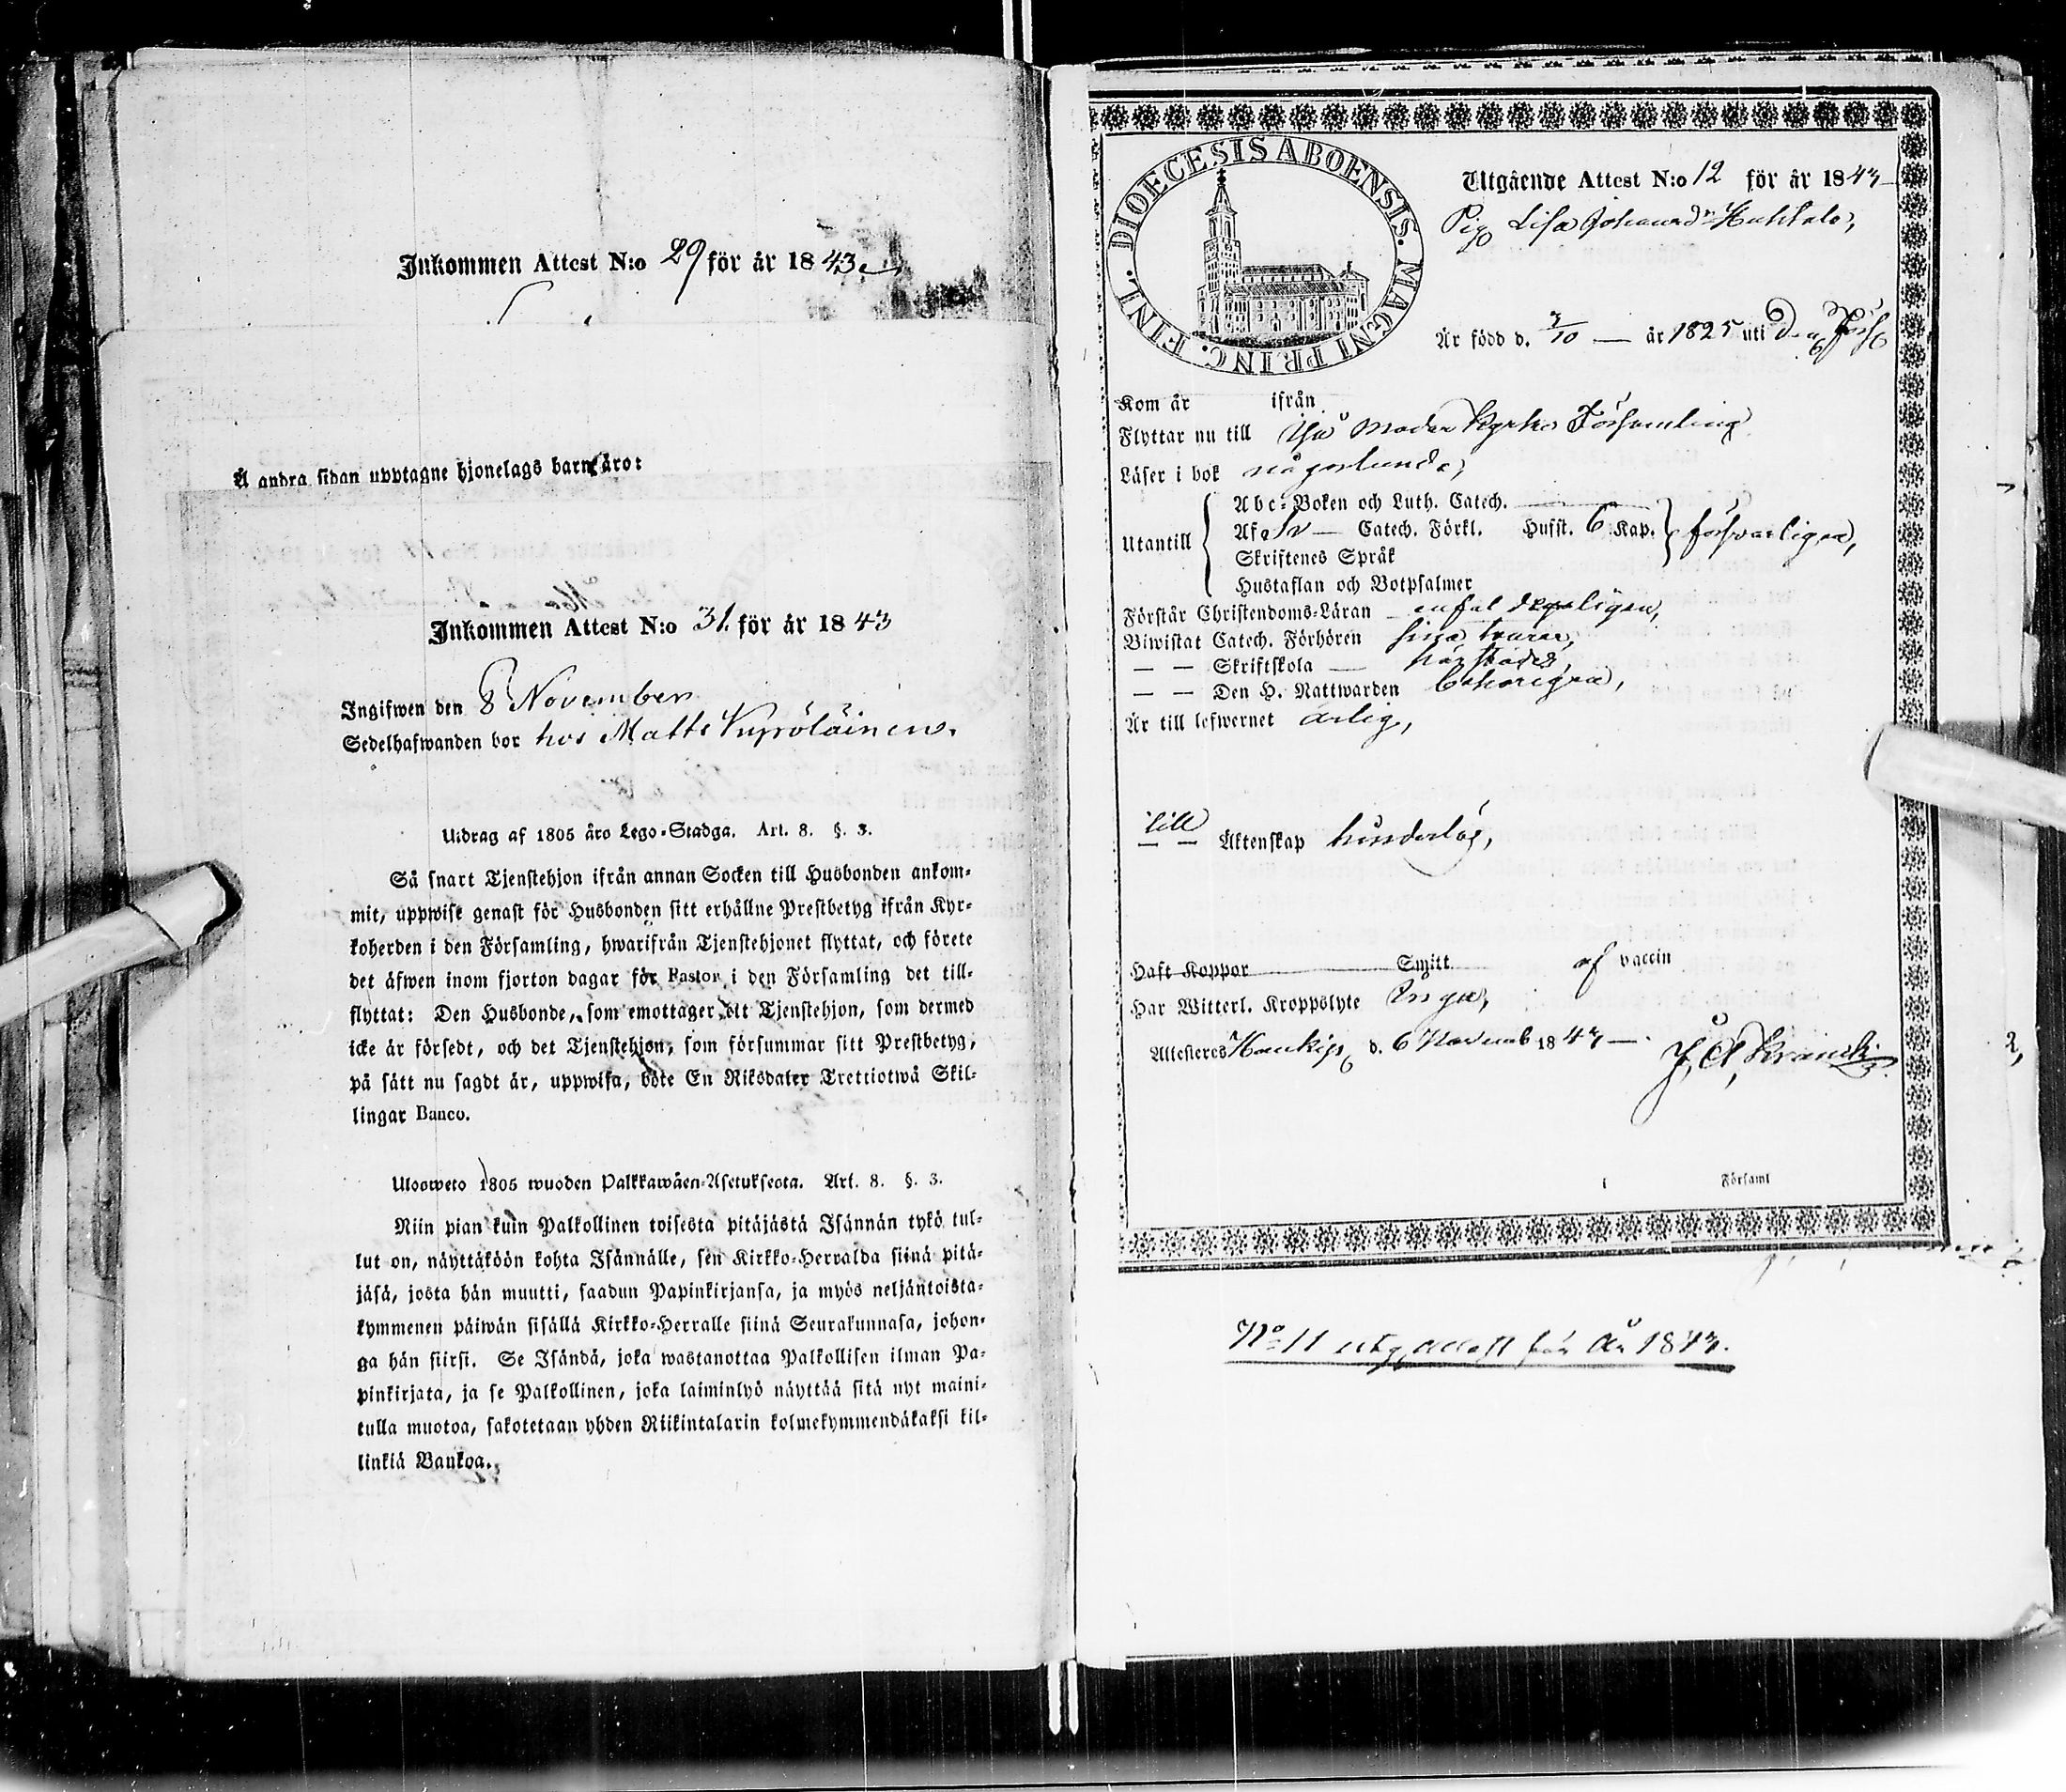 Inkommen Attest N:o 29 för år 1843
Å andra sidan upptagne hjonelags barn äro:
Inkommen Attest N:o 31. för år 1843
Ingifwen den 8 November
Sedelhafwanden bor hos Matts Kyröläinen.
Utdrag af 1805 års Lego-Stadga. Art. 8. §. 3.
Så snart Tjenstehjon ifrån annan Socken till Husbonden ankom-
mit, uppwise genast för Husbonden sitt erhållne Prestbetyg ifrån Kyr-
koherden i den Församling, hwarifrån Tjenstehjonet flyttat, och förete
det äfwen inom fjorton dagar för Pastor i den Församling det till-
flyttat: Den Husbonde, som emottager ett Tjenstehjon, som dermed
icke är försedt, och det Tjenstehjon, som försummar sitt Prestbetyg,
på sätt nu sagdt är, uppwisa, böte En Riksdaler Trettiotwå Skil-
lingar Banco.
Ulosweto 1805 wuoden Palkkawäen-Asetuksesta. Art. 8. §. 3.
Niin pian kuin Palkollinen toisesta pitäjästä Isännän tykö tul-
lut on, näyttäköön kohta Isännälle, sen Kirkko-Herralda siinä pitä-
jäsä, josta hän muutti, saadun Papinkirjansa, ja myös neljäntoista-
kymmenen päiwän sisällä Kirkko-Herralle siinä Seurakunnasa, johon-
ga hän siirsi. Se Isändä, joka wastanottaa Palkollisen ilman Pa-
pinkirjata, ja se Palkollinen, joka laiminlyö näyttää sitä nyt maini-
tulla muotoa, sakotetaan yhden Riikintalarin kolmekymmendäkaksi kil-
linkiä Bankoa.
DIOECESIS ABOENSIS. MAGNI PRINC. FINL.
Utgående Attest N:o 12 för år 1843
Pig Lisa Johansdr Huhtala,
Är född d. 3/10 — år 1825 uti
Kom år ifrån
Flyttar nu till Moder kyrko Församling
Läser i bok någorlunda,
Utantill
Abc-Boken och Luth. Catech.
Af Catech. Förkl. Hufst. 6 Kap. försvarligen,
Skriftenes Språk
Hustaflan och Botpsalmer
Förstår Christendoms-Läran enfaldeligen,
Biwistat Catech. Förhören sina turer,
— — Skriftskola — härstädes,
— — Den H. Nattwarden behörigen,
Är till lefwernet ärlig,
till
— — Äktenskap hinderlös,
Haft Koppor Smitt af vaccin
Har Witterl. Kroppslyte Inga,
Attesteras d. 6 Novemb 1843 —.
Församl
No 11 utg. attest för År 1843.